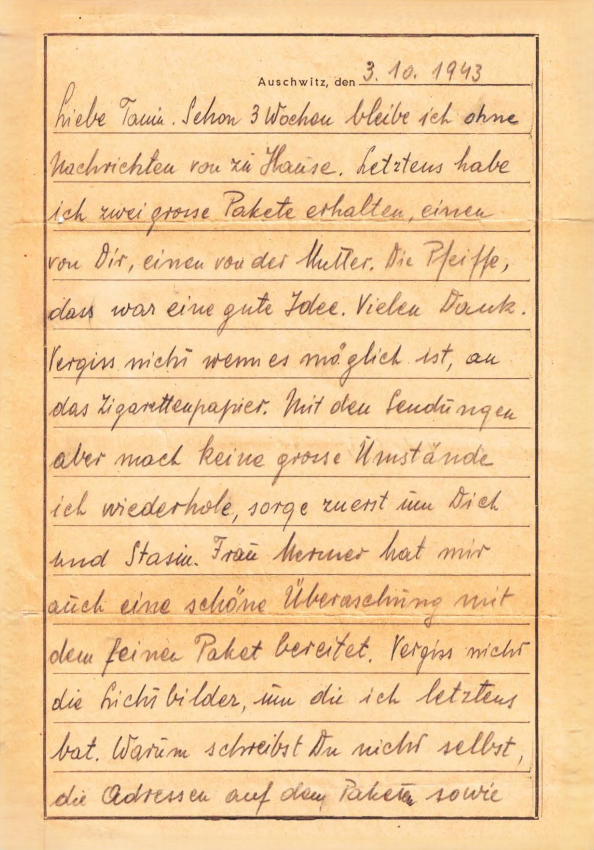 Auschwitz, den 3.10.1943
Liebe Tanin. Schon 3 Wochen bleibe ich ohne
Nachrichten von zu Hause. Letztens habe
ich zwei grosse Pakete erhalten, einen
von Dir, einen von der Mutter. Die Pfeiffe,
dass war eine gute Idee. Vielen Dank.
Vergiss nicht wenn es möglich ist, an
das Zigarettenpapier. Mit den Sendungen
aber mach keine grosse Umstände
ich wiederhole, sorge zuerst um Dich
und Stasin. Frau Mermer hat mir
auch eine schöne Überaschung mit
dem feinen Paket bereitet. Vergiss nicht
die Lichtbilder, um die ich letztens
bat. Warum schreibst Du nicht selbst,
die Adressen auf dem Paketen sowie